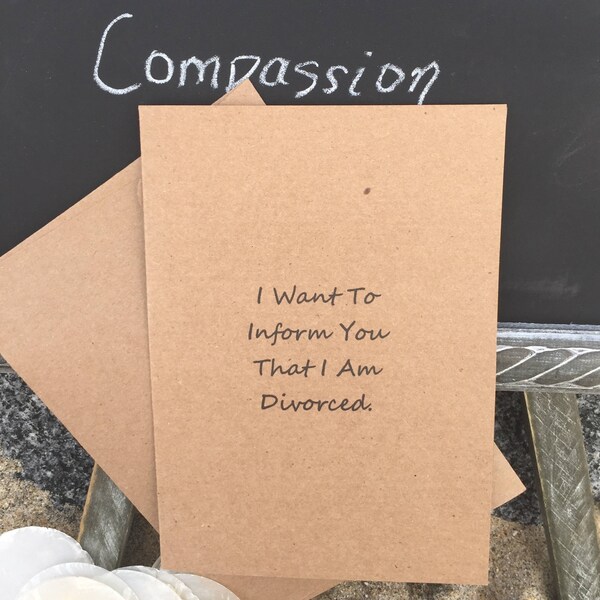 Compassion
I Want To
Inform You
That I Am
Divorced.